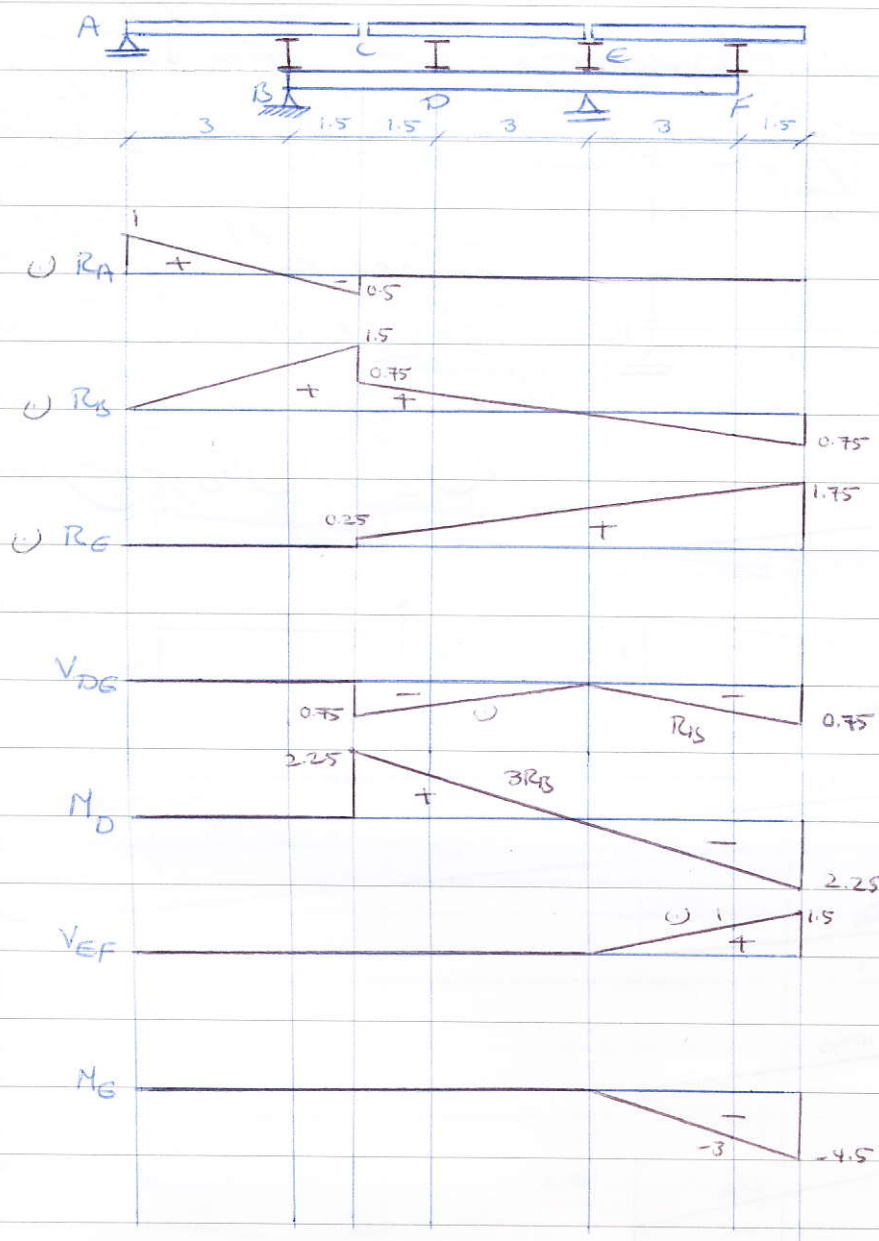 A C E
B D F
3 1.5 1.5 3 3 1.5
1
RA + - 0.5
1.5
0.75
RB + + 0.75
0.25 1.75
RE +
VDE - -
0.75 RB 0.75
2.25 3RB
MD + - 2.25
1 1.5
VEF +
ME -
-3 -4.5